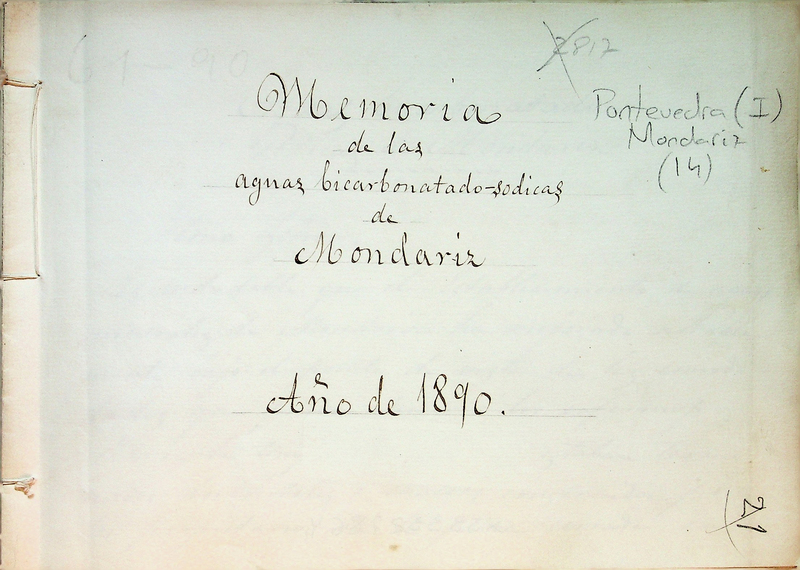 2817
Pontevedra (I)
Mondariz
(14)
Memoria
de las
aguas bicarbonatado-sodicas
de
Mondariz
Año de 1890.
21